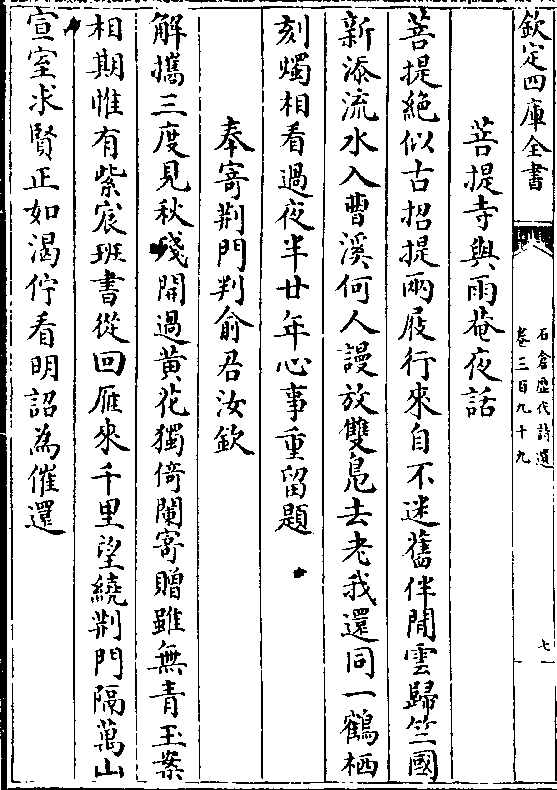 欽定四庫全書
石倉歷代詩選
卷三百九十九
七
菩提寺與雨菴夜話
菩提絶似古招提兩屐行來自不迷舊伴閒雲歸竺國
新添流水入曹溪何人謾放雙鳬去老我還同一鶴栖
刻燭相看過夜半廿年心事重留題
奉寄荆門判俞君汝欽
解攜三度見秋殘開過黄花獨倚闌寄贈雖無青玉案
相期惟有紫宸班書從回雁來千里望繞荆門隔萬山
宣室求賢正如渴佇看明詔為催還